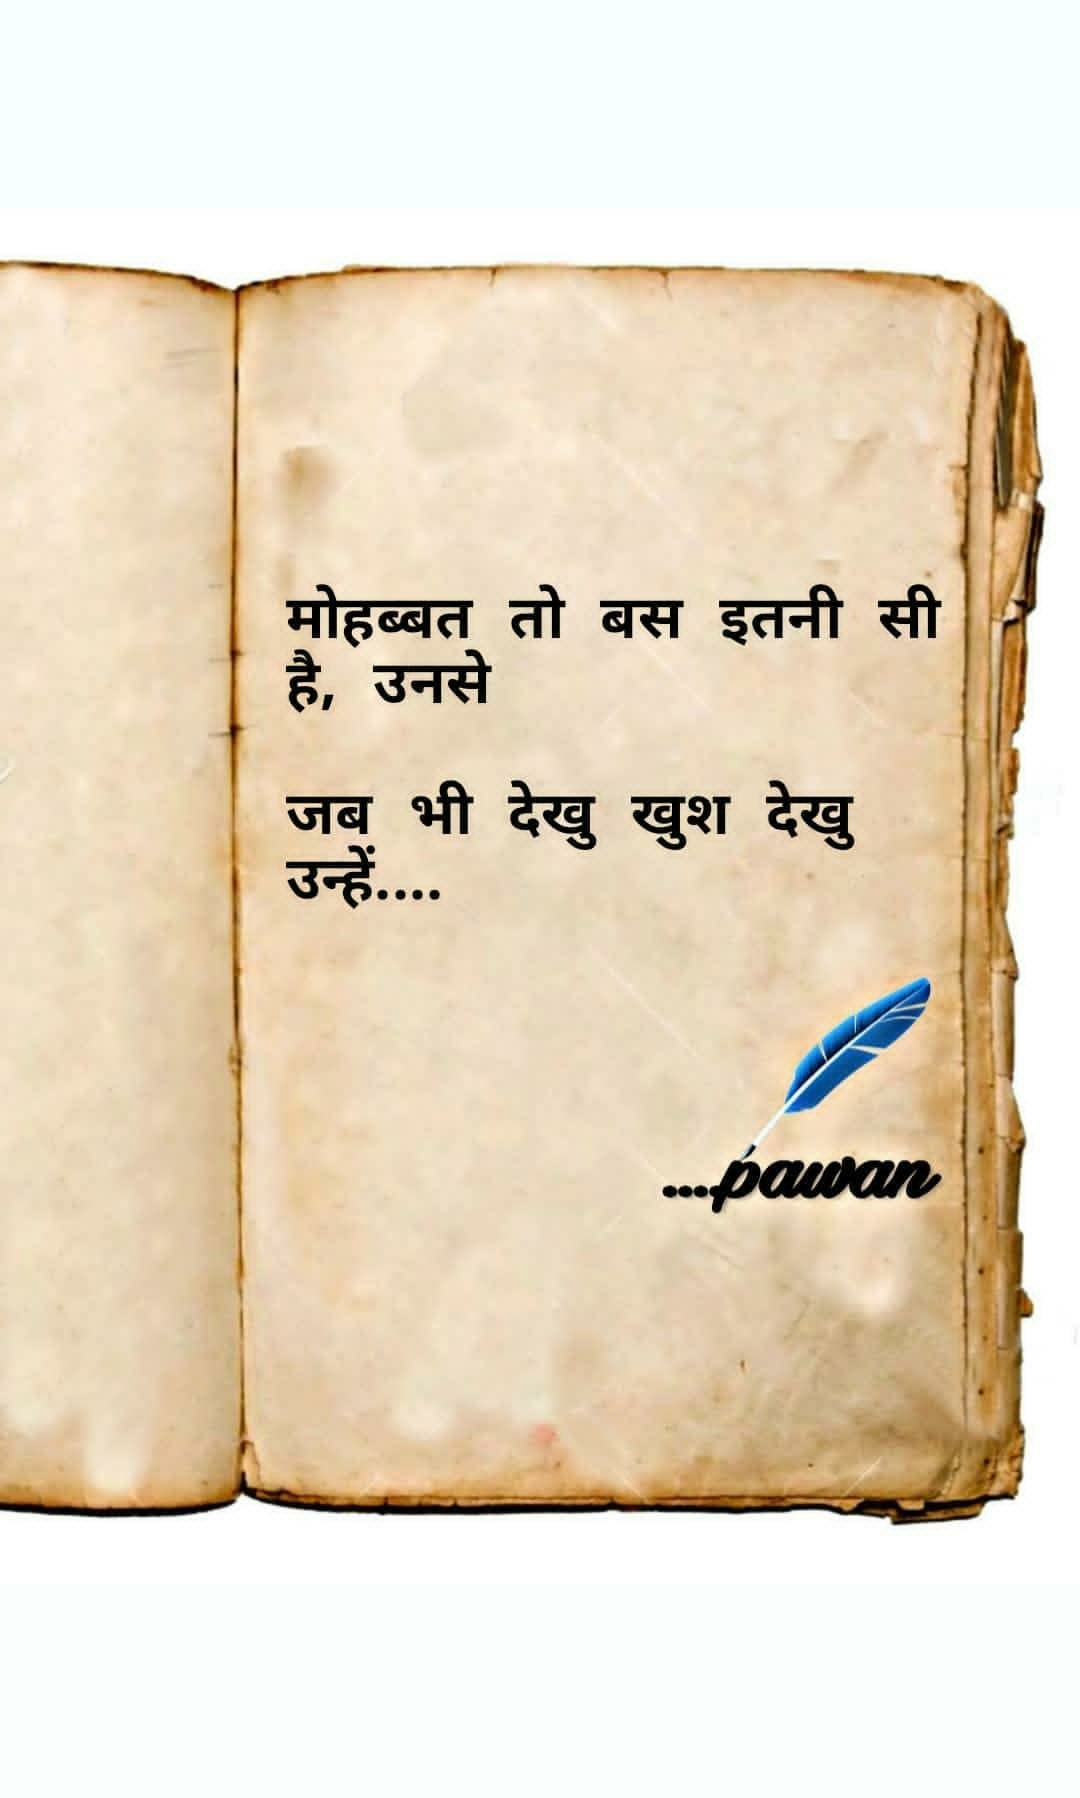 मोहब्बत तो बस इतनी सी
है, उनसे
जब भी देखु खुश देखु
उन्हें....
....pawan